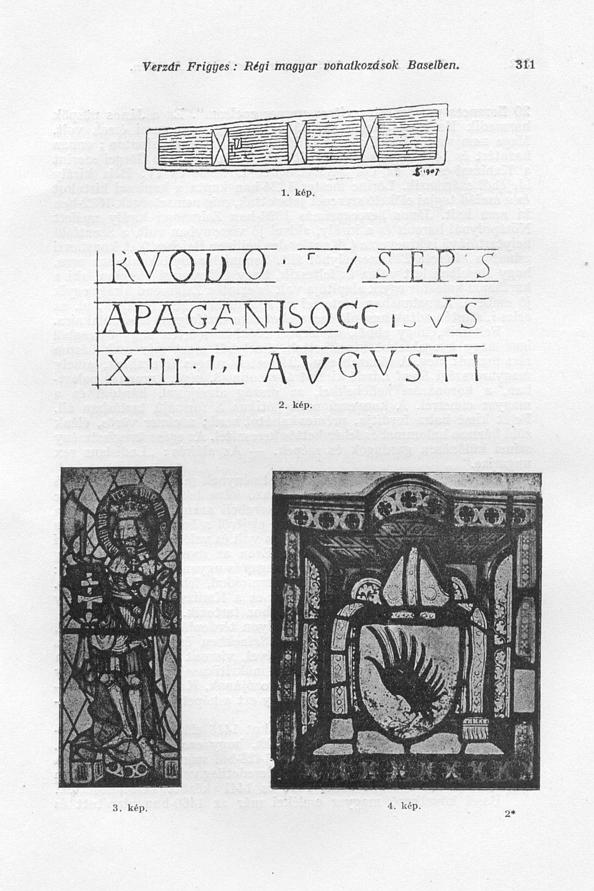 Verzár Frigyes: Régi magyar vonatkozások Baselben. 311
1907
1. kép.
RVODO SEPS
APAGANISOCC VS
X!III AVGVSTI
2. kép.
3. kép.
4. kép.
2*